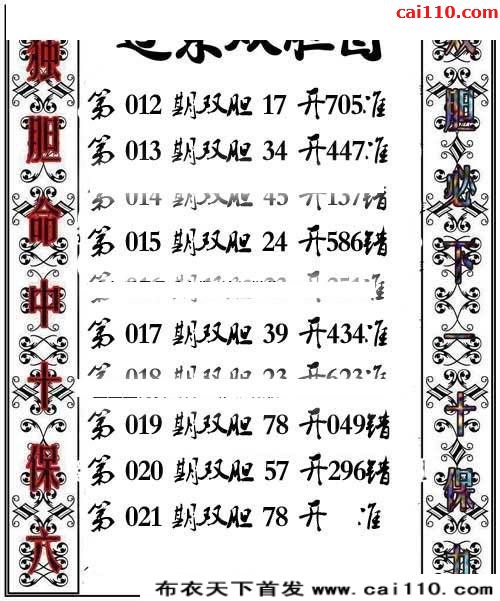 cai110.com
第 012 期双胆 17 开705准
第 013 期双胆 34 开447准
第 014 期双胆 45 开137错
第 015 期双胆 24 开586错
第 017 期双胆 39 开434准
第 018 期双胆 23 开623准
第 019 期双胆 78 开049错
第 020 期双胆 57 开296错
第 021 期双胆 78 开 准
独胆命中十保六
胆必下一十保九
布衣天下首发 www.cai110.com